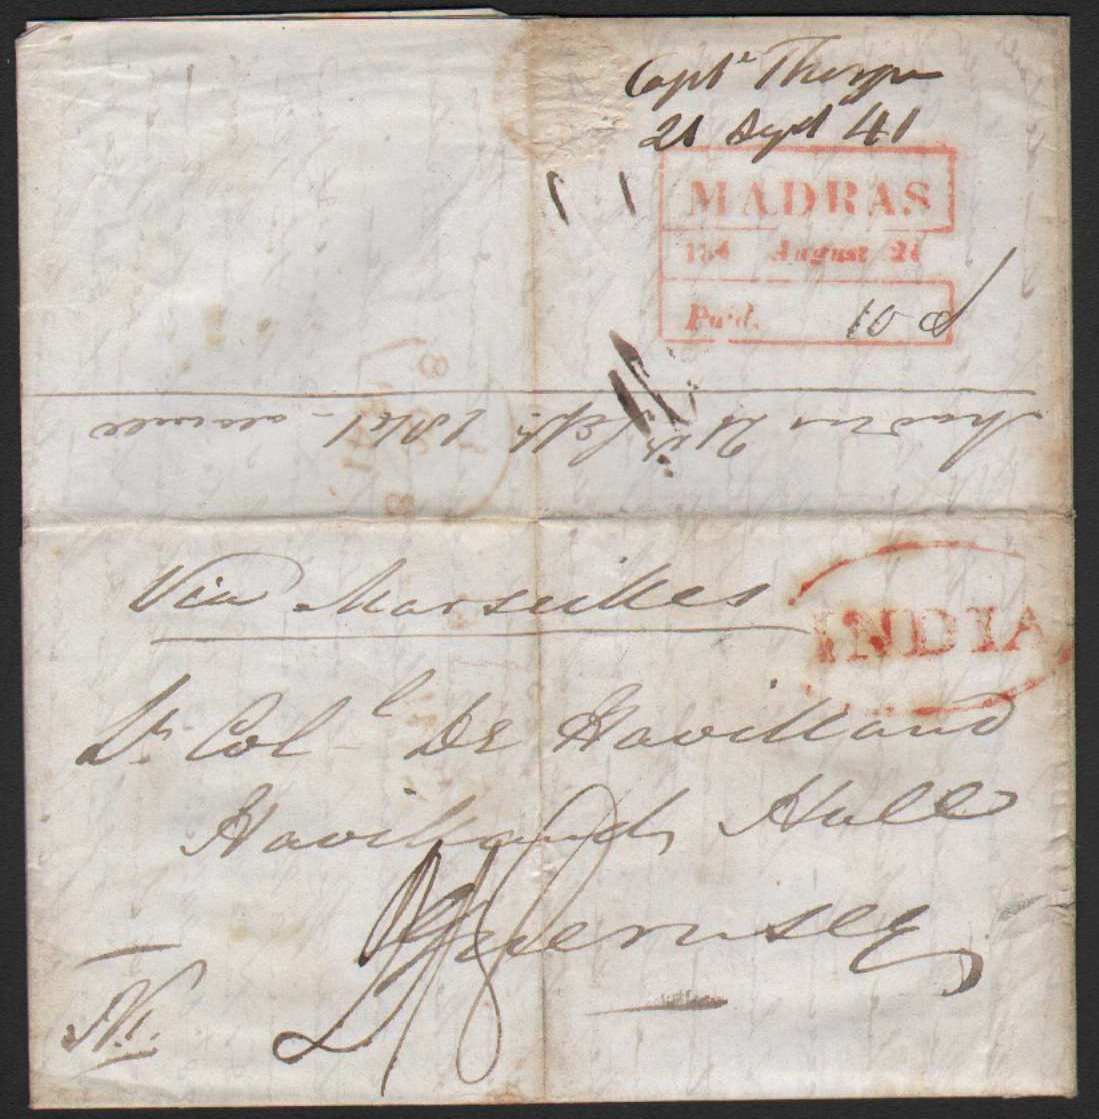 Capt Thorpe
21 Sept 41
MADRAS
184 August 21
Paid. 10 d
Madras 21st Sept. 1841 -
Via Marseilles
INDIA
Lt. Coll De Havilland
Havilland Hall
Guernsey